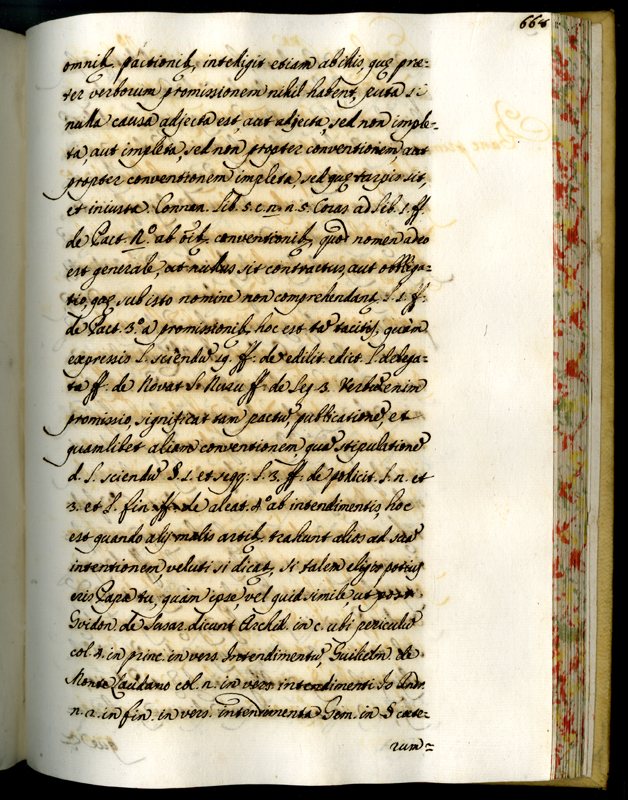 668
omnib. pactionib, intelligit etiam ab ihio, quę prę=
ter verborum promissionem nihil habent, puta si
nulla causa adjecta est, aut adjecta, sed non imple=
ta, aut impleta, sed non propter conventionem, aut
propter conventionem impleta, sed quę turpis sit,
et iniusta. Connan. lib. 5. c. n. n. 5. Coras ad lib. 1. ff.
de Pact. 2.º ab oib. conventionib, quod nomen adeo
est generale, ut nullus sit contractus, aut obliga=
tio, quę sub isto nomine non comprehendant. l. 1. ff.
de Pact. 3.º a promissionib, hoc est tã tacitis, quam
expressis l. sciendũ 19. ff. de edilit. edict. l. delega=
ta ff. de Novat. l. Nuru ff. de leg. 3. Verbũ enim
promissio, significat tam pactũ, publicationẽ, et
quamlibet aliam conventionem, quã stipulationẽ
d. l. sciendũ § 1. et seqq: l. 3. ff. de policit. l. n. et
3. et l. fin. ff. de aleat. 4.º ab intendimentis, hoc
est quando alij malis artib. trahunt alios ad suã
intentionem, veluti si dicat, si talem eligis potius
eris Papa tu, quam ipse vel quid simile, ut
Guidon. de Suzar. dicunt Archid. in c. ubi periculũ
col. 4. in princ. in vers. Intendimentũ, Guihelm. de
Monte Laudano col. n. in vers. intendimenti Io. Andr.
n. 2. in fin. in vers. intendimenta Gem. in § cæte=
rum=